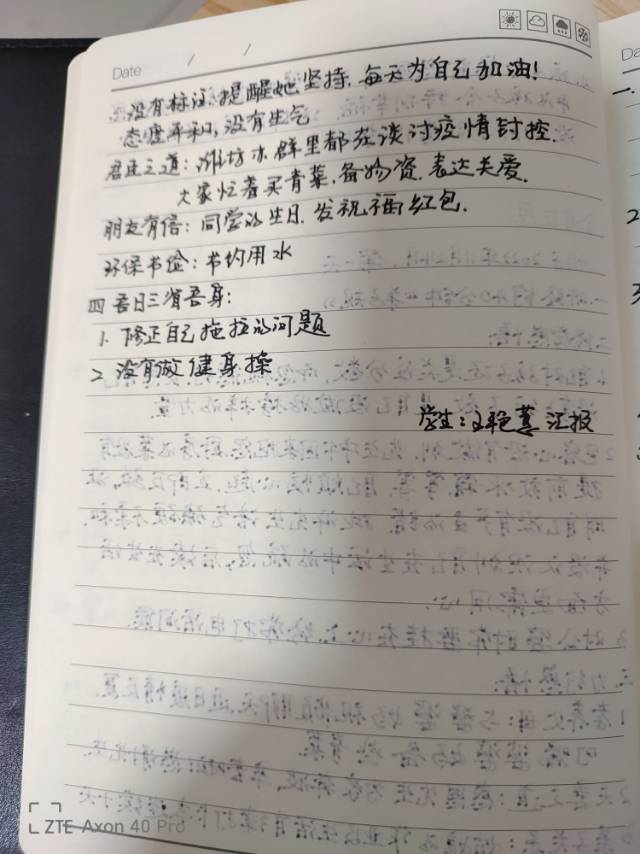 Date / /
Da
没有标注,提醒她坚持,每天为自己加油!
态度平和,没有生气
君臣之道:潍坊水群里都在谈讨疫情封控.
大家忙着买青菜,备物资,表达关爱.
朋友有信:同学的生日,发祝福红包.
环保节俭:节约用水
四 吾日三省吾身:
1. 修正自己拖拉的问题
2 没有做健身操
学生:王艳 汇报
ZTE Axon 40 Pro